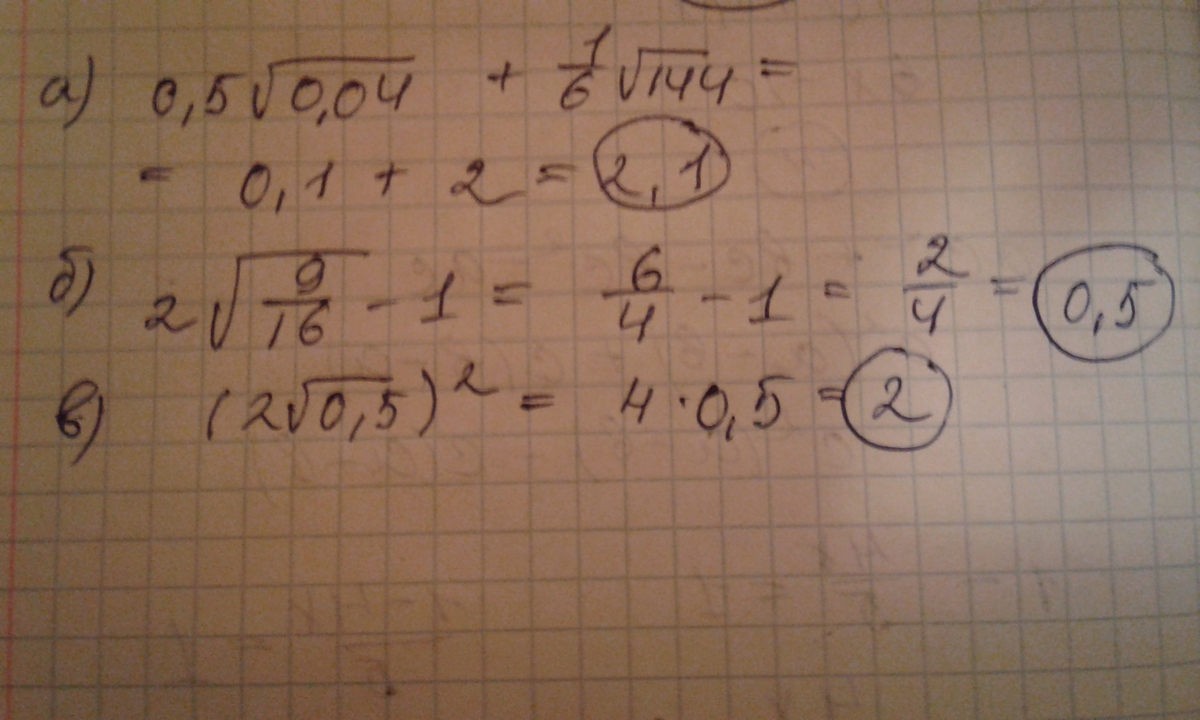 а) 0,5√0,04 + 1/6 √144 =
= 0,1 + 2 = 2,1
б) 2√9/16 - 1 = 6/4 - 1 = 2/4 = 0,5
в) (2√0,5)² = 4 · 0,5 = 2